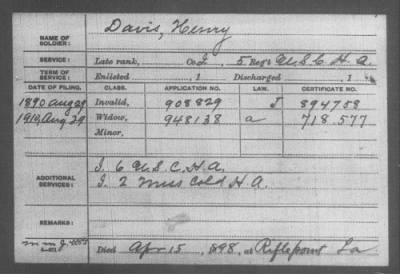 NAME OF SOLDIER: Davis, Henry
SERVICE: Late rank, Co. I, 5 Reg't U.S.C.H.A.
TERM OF SERVICE: Enlisted , 1 Discharged , 1
DATE OF FILING. CLASS. APPLICATION NO. LAW. CERTIFICATE NO.
1890 Aug 29 Invalid, 908829 J 894758
1910, Aug 29 Widow, 948138 a 718577
Minor,
ADDITIONAL SERVICES: I. 6 U.S.C.H.A.
I. 2 Miss Cold H.A.
REMARKS:
Died Apr 15, 1898, at Riflepoint La